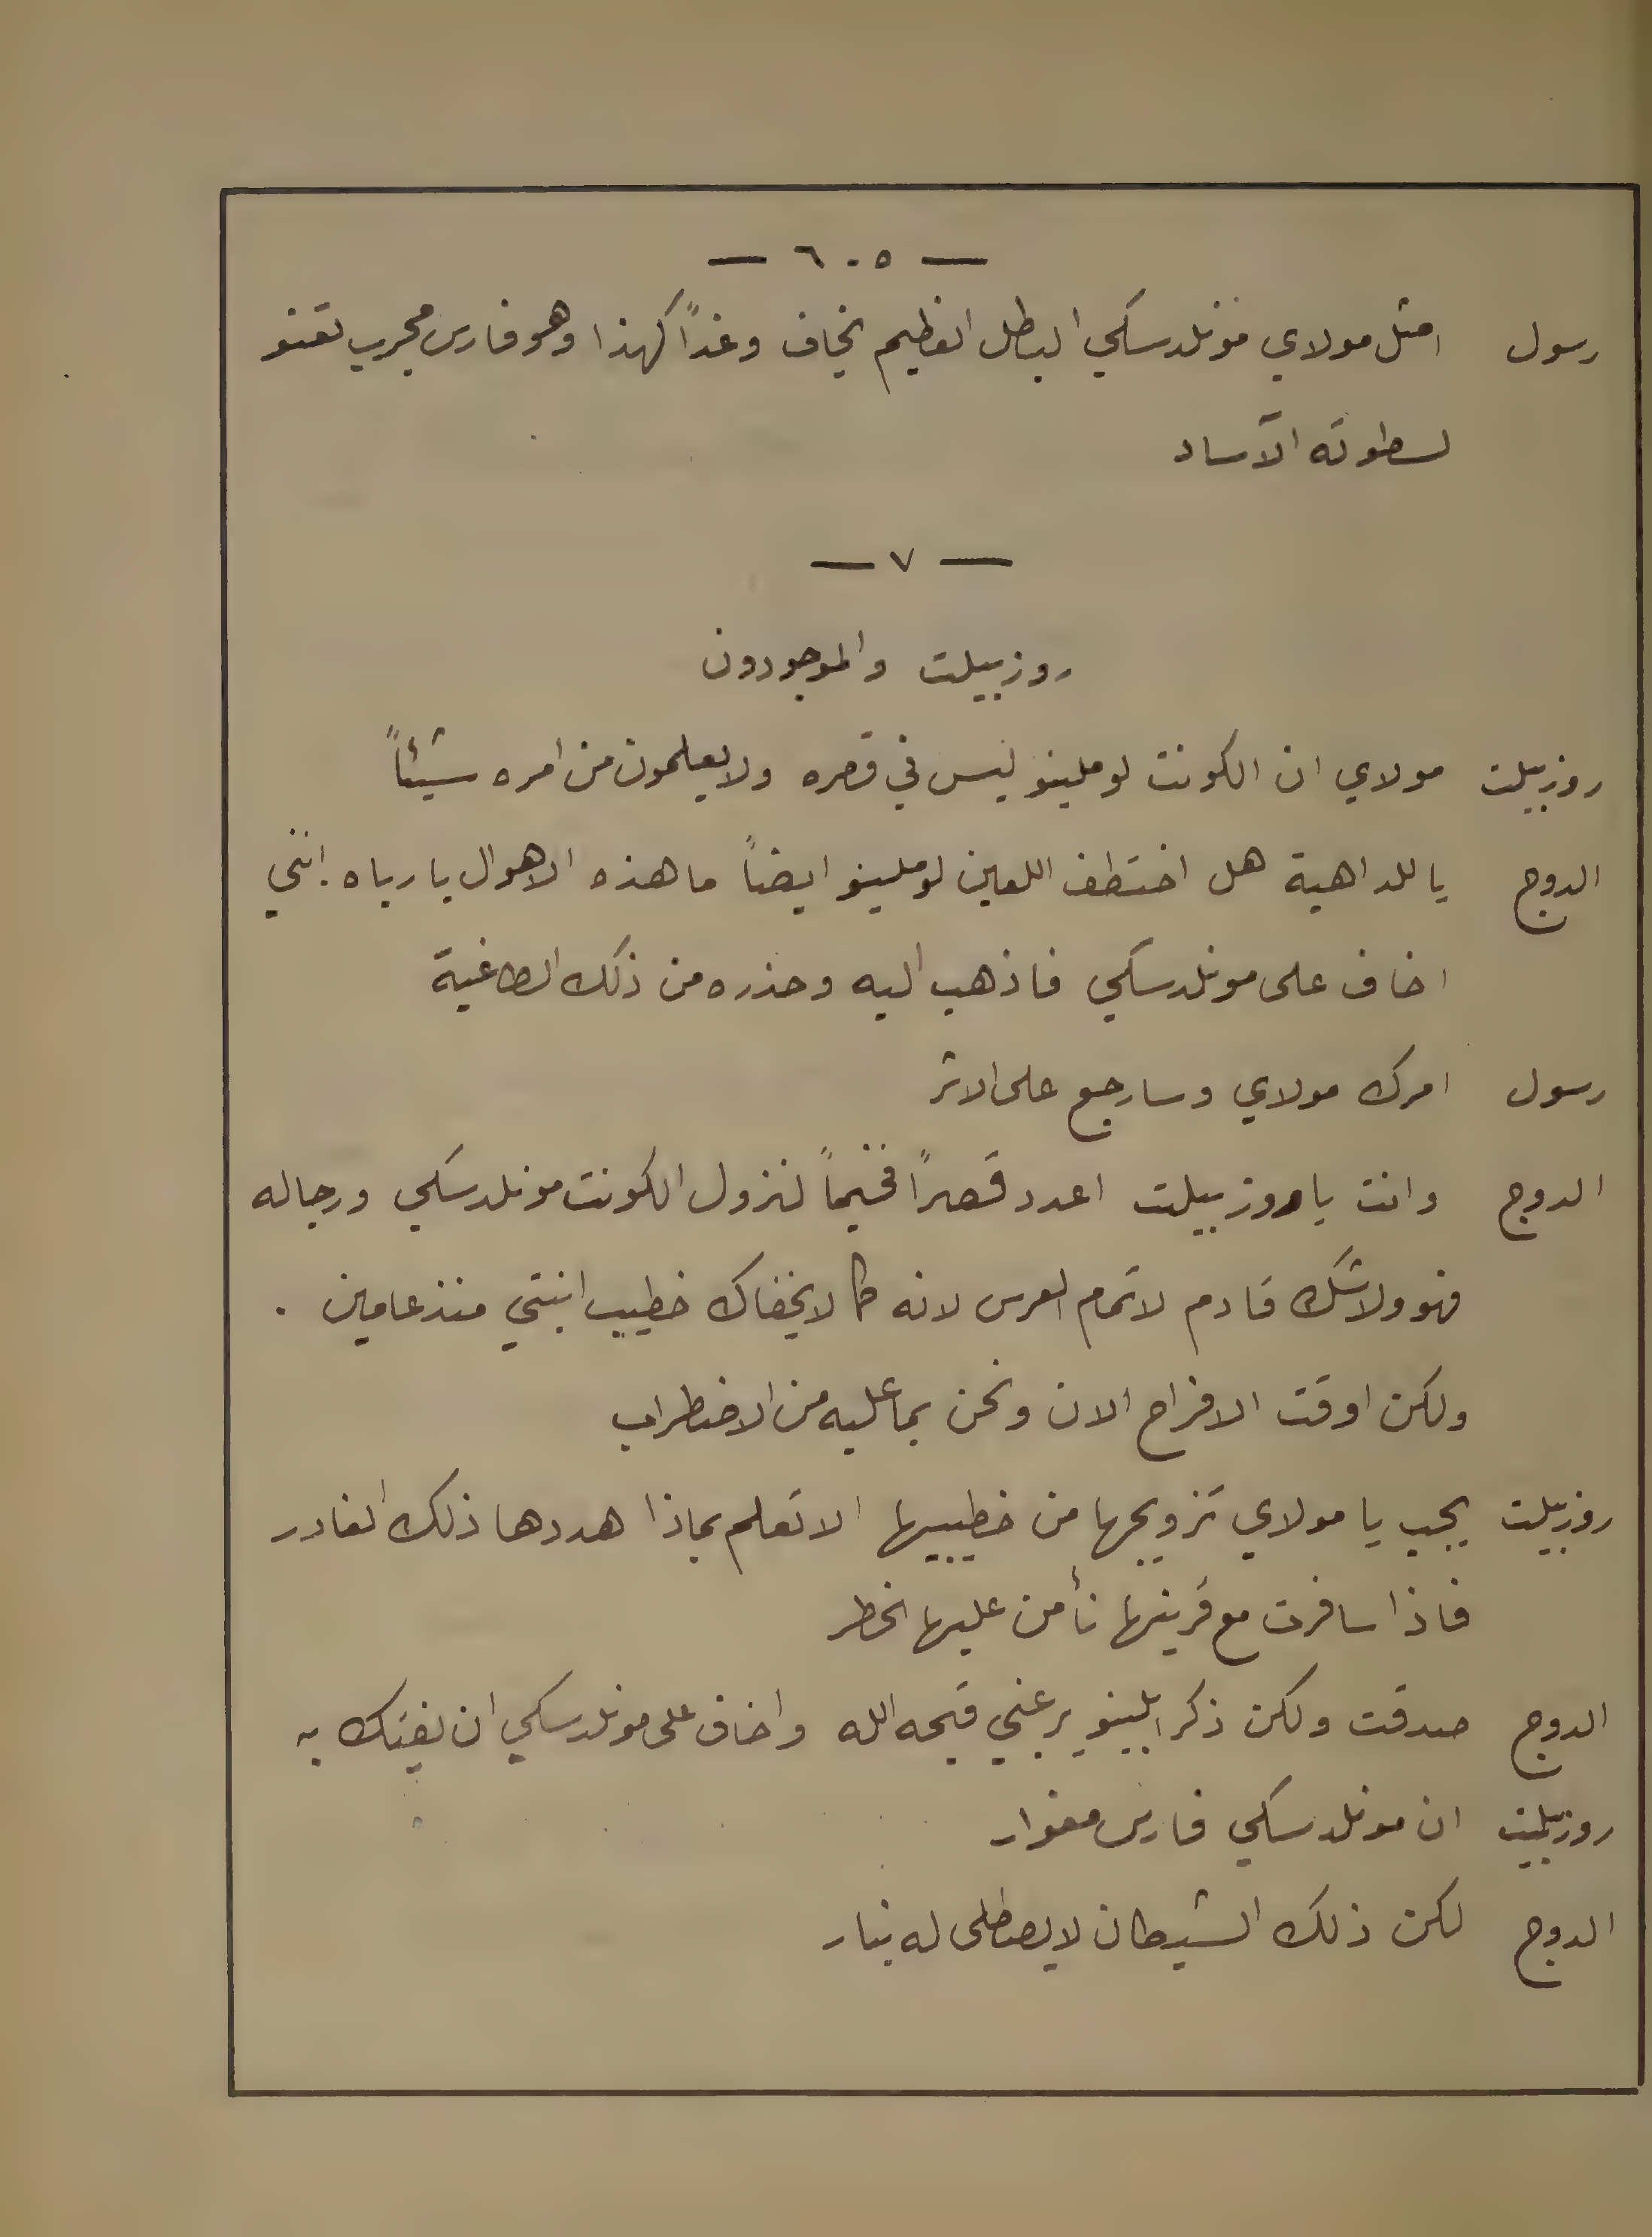 — ٦٠٥ —
رسول امثل مولاي مونلدسكي البطل العظيم يخاف وغداً كهذا وهو فارس مجرب تعنو
لسطوته الآساد
— ٧ —
روزبيلت والموجودون
روزبيلت مولاي ان الكونت لوملينو ليس في قصره ولا يعلمون من امره شيئاً
الدوج يا للداهية هل اختطف اللعين لوملينو ايضاً ما هذه الاهوال يا رباه . انني
اخاف على مونلدسكي فاذهب اليه وحذره من ذلك الطاغية
رسول امرك مولاي وسارجع على الاثر
الدوج وانت يا روزبيلت اعدد قصراً فخيماً لنزول الكونت مونلدسكي ورجاله
فهو ولا شك قادم لاتمام العرس لانه كما لا يخفاك خطيب ابنتي منذ عامين .
ولكن اوقت الافراح الان ونحن بما عليه من الاضطراب
روزبيلت يجب يا مولاي تزويجها من خطيبها الا تعلم بماذا هددها ذلك الغادر
فاذا سافرت مع قرينها نأمن عليها الخطر
الدوج صدقت ولكن ذكر ابلينو يرعبني قبحه الله واخاف على مونلدسكي ان يفتك به
روزبيلت ان مونلدسكي فارس مغوار
الدوج لكن ذلك الشيطان لا يصطلى له بنار